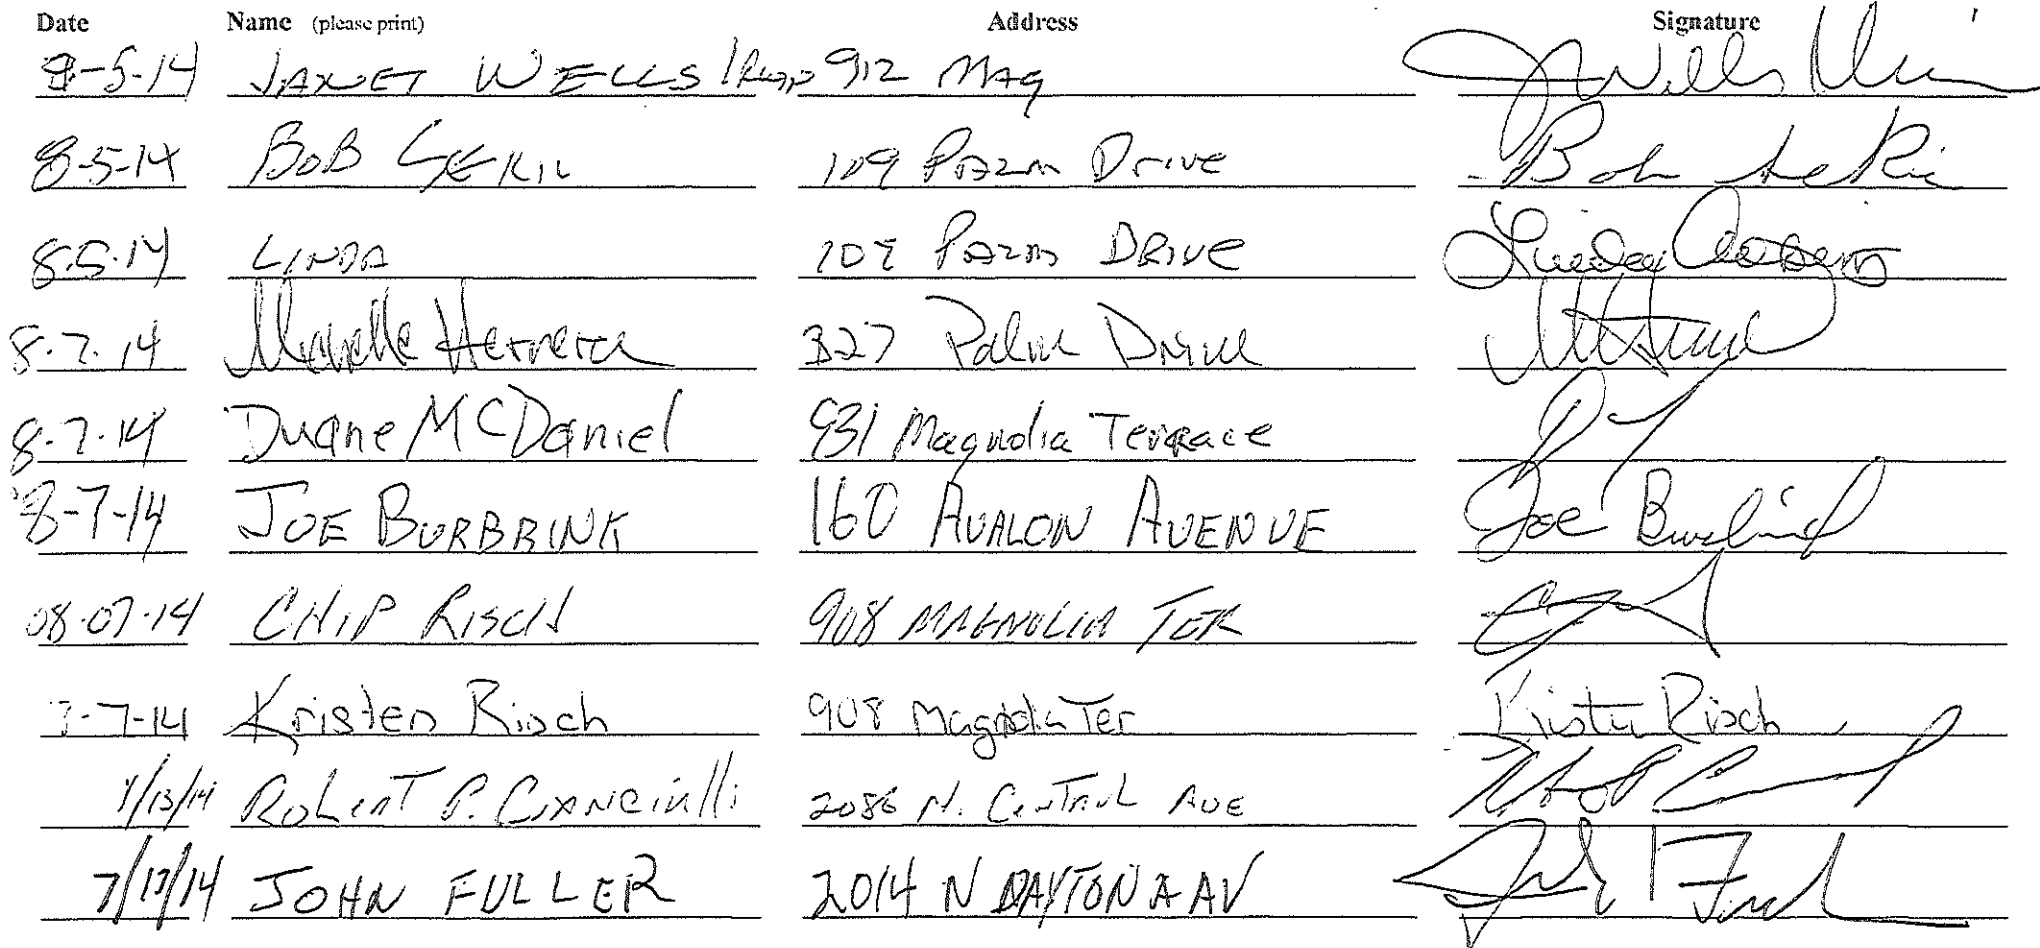 Date Name (please print) Address Signature
8-5-14 JANET WELLS 912 MAG
8-5-14 BOB 109 PALM Drive Bob
8.5.14 LINDA 109 PALM DRIVE Linda
8.7.14 Michelle Herrera 327 Palm Drive
8.7.14 Duane McDaniel 931 Magnolia Terrace
8-7-14 JOE BURBRINK 160 AVALON AVENUE Joe Burbrink
08.07.14 CHIP RISCH 908 MAGNOLIA TER
8-7-14 Kristen Risch 908 Magnolia Ter Kristen Risch
/13/14 Robert P. Ciancirulli 2086 N. Central AVE
7/13/14 JOHN FULLER 2014 N DAYTONA AV